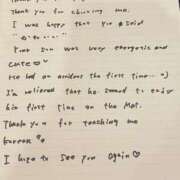 Thank you for choosing me.
I was happy that you said
Your son was very energetic and
cute♡
He had an accident the first time... :)
I'm relieved that he seemed to enjoy
his first time on the
Thank you for teaching me
korean
I hope to see you again♡